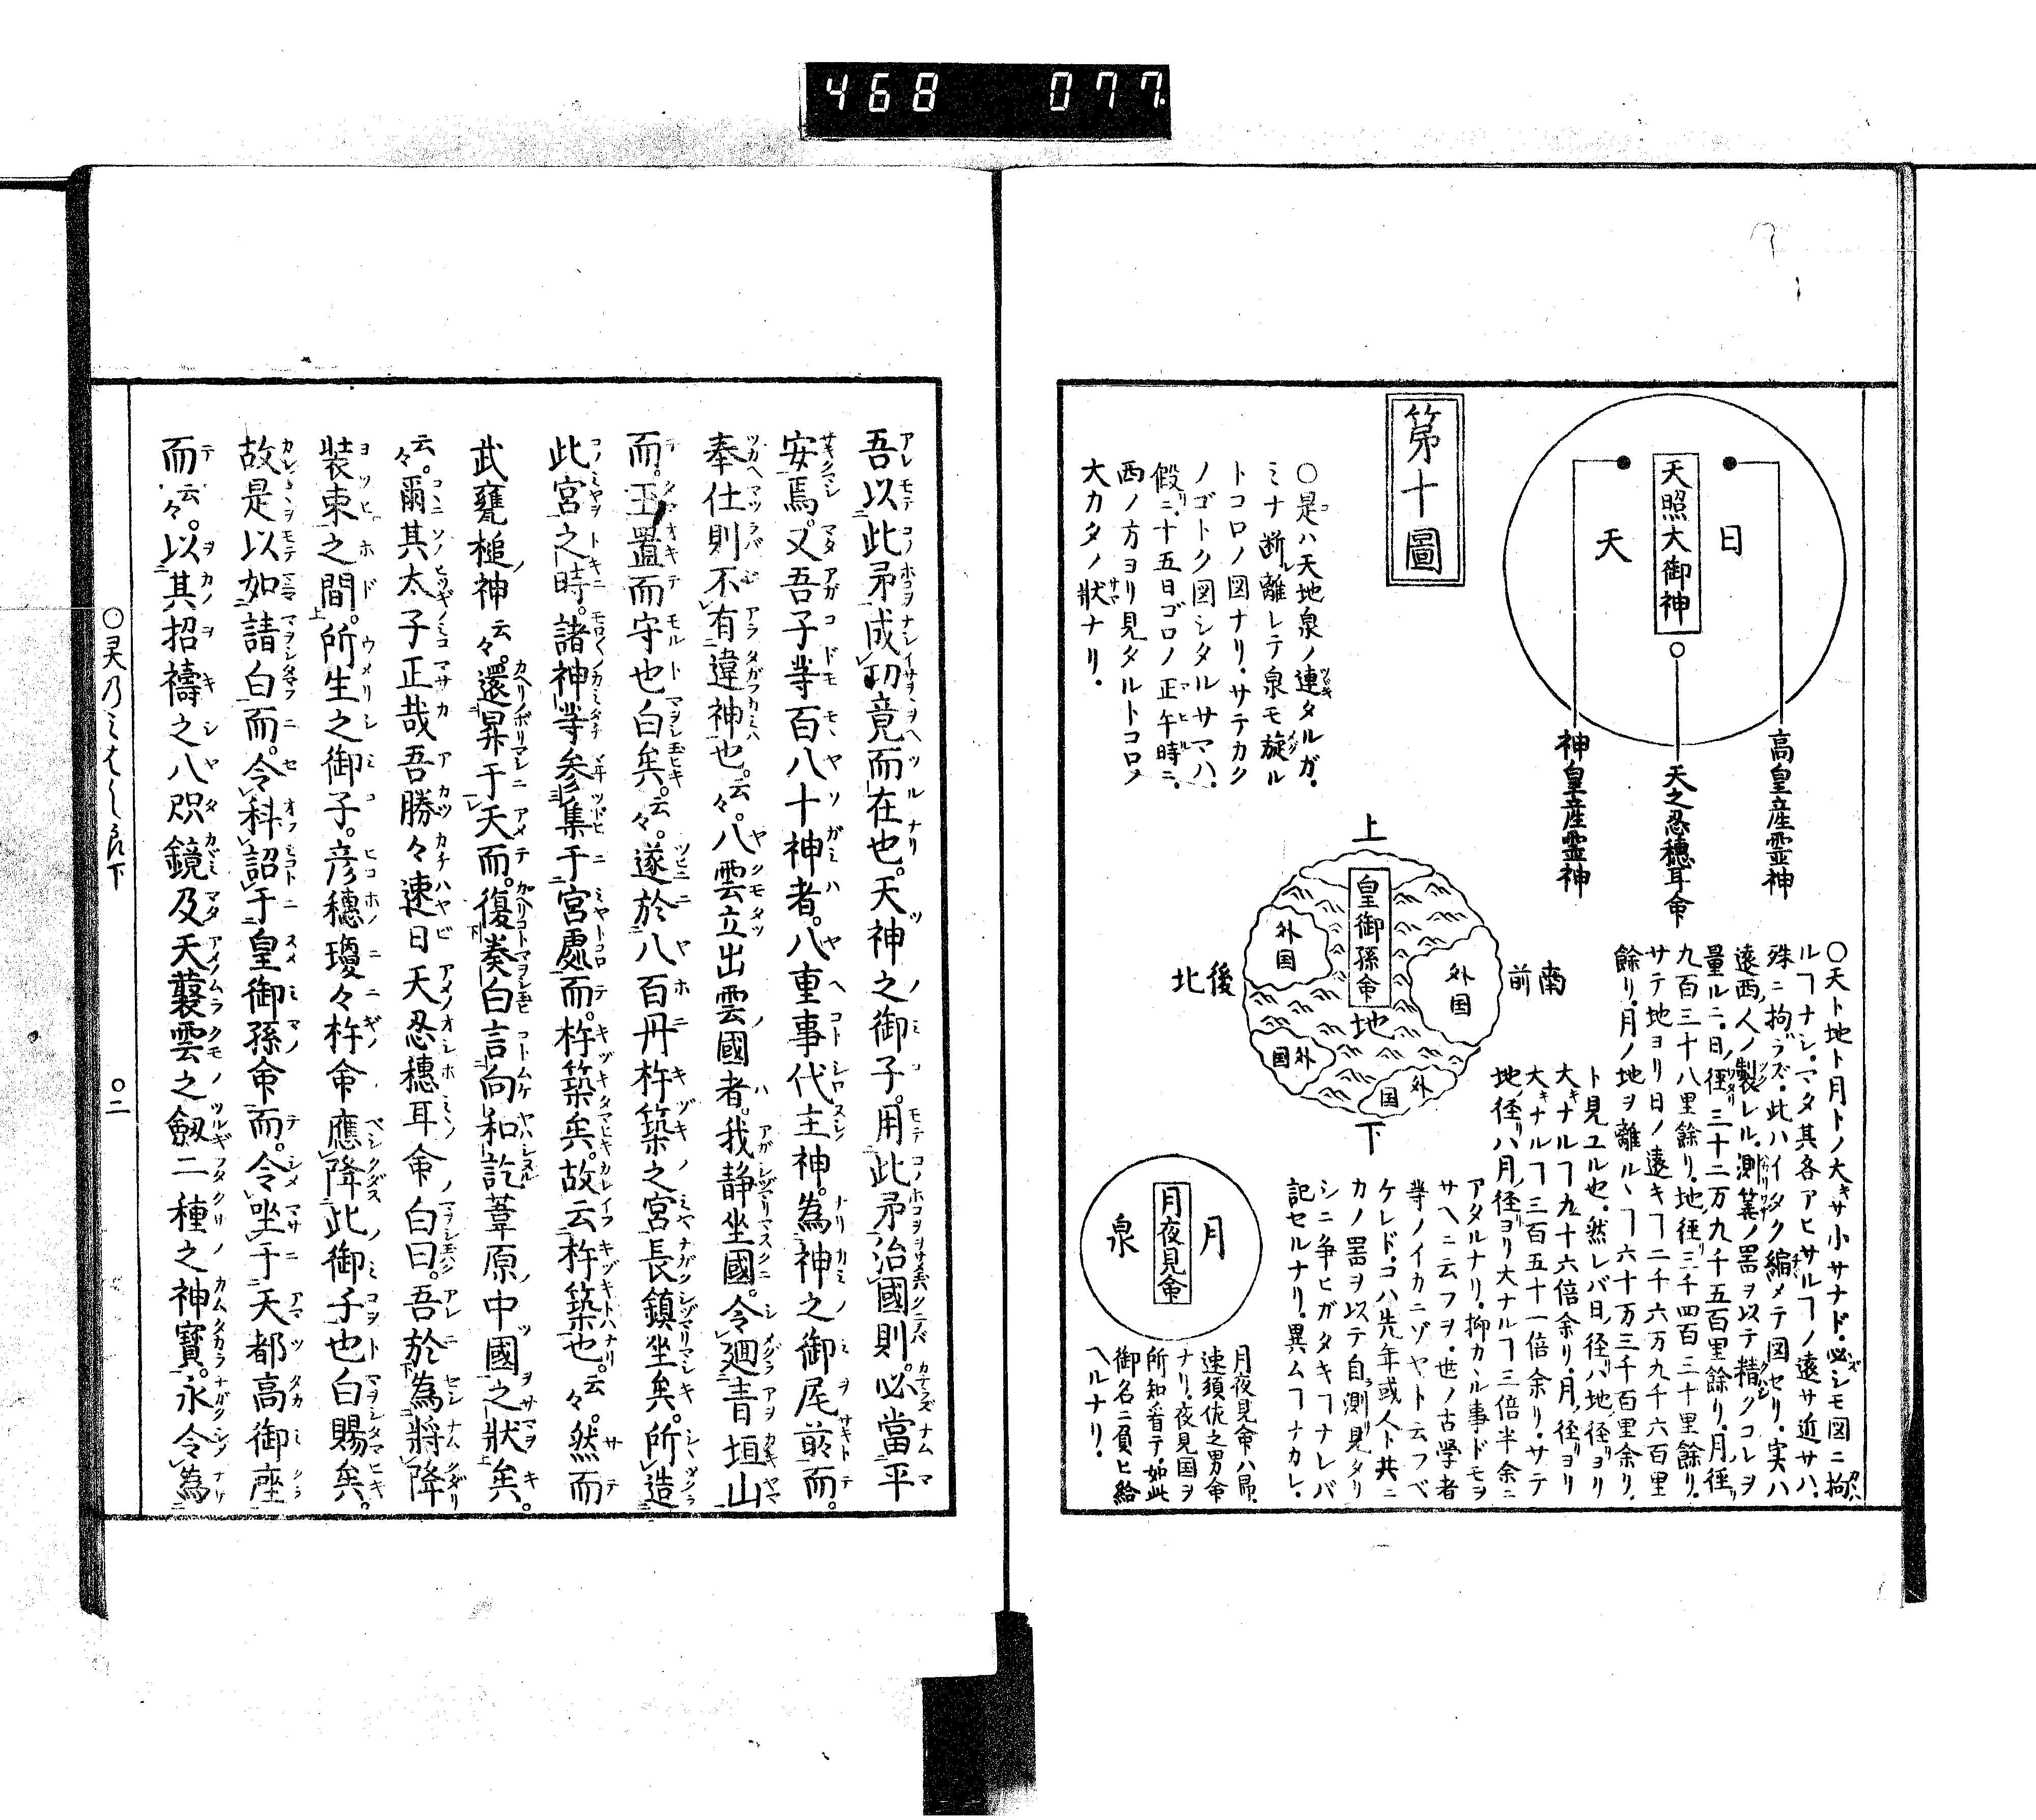 468 077
第十圖
日
天照大御神
天
高皇産霊神
天之忍穂耳命
神皇産霊神
○是ハ天地泉ノ連タルガ、
ミナ断離レテ泉モ旋ル
トコロノ図ナリ。サテカク
ノゴトク図シタルサマハ、
假ニ、十五日ゴロノ正午時ニ、
西ノ方ヨリ見タルトコロノ
大カタノ狀ナリ。
○天ト地ト月トノ大キサ小サナド、必ズシモ図ニ拘
ルヿナシ。マタ其各アヒサルヿノ遠サ近サハ、
殊ニ拘ラズ。此ハイタク縮メテ図セリ。実ハ
遠西ノ人ノ製レル、測筭ノ器ヲ以テ精クコレヲ
量ルニ、日ノ径リ三十二万九千五百里餘リ。月ノ径リ
九百三十八里餘リ。地ノ径リ三千四百三十里餘リ。
サテ地ヨリ日ノ遠キヿ二千六万九千六百里
餘リ。月ノ地ヲ離ルヽヿ六十万三千百里余リ。
ト見ユル也。然レバ日ノ径リハ地ノ径リヨリ
大キナルヿ九十六倍余リ。月ノ径リヨリ
大キナルヿ三百五十一倍余リ。サテ
地ノ径リハ月ノ径リヨリ大ナルヿ三倍半余ニ
アタルナリ。抑カヽル事ドモヲ
サヘニ云フヲ、世ノ古学者
等ノイカニゾヤト云フベ
ケレド、コハ先年或人ト共ニ
カノ器ヲ以テ自ラ測リ見タリ
シニ争ヒガタキヿナレバ
記セルナリ。異ムヿナカレ。
上
皇御孫命
地
外国
外国
外国
外国
南前
後北
下
月
月夜見命
泉
月夜見命ハ即、
速須佐之男命
ナリ。夜見国ヲ
所知看テ、如此
御名ニ負ヒ給
ヘルナリ。
吾以此矛成功竟而在也。天神之御子。用此矛治國則。必當平
安焉。又吾子等百八十神者。八重事代主神。為神之御尾前而。
奉仕則不有違神也。云々。八雲立出雲國者。我静坐國。令廻青垣山
而。玉置而守也白矣。云々。遂於八百丹杵築之宮長鎮坐矣。所造
此宮之時。諸神等参集于宮處而。杵築矣。故云杵築也。云々。然而
武甕槌神云々。還昇于天而。復奏白言向和訖葦原中國之狀矣。
云々。爾其太子正哉吾勝々速日天忍穗耳命白曰。吾於為將降
装束之間。所生之御子。彦穂瓊々杵命應降此御子也白賜矣。
故是以如請白而。令科詔于皇御孫命而。令坐于天都高御座
而云々。以其招禱之八咫鏡及天蘘雲之劔二種之神寶。永令為
○霊乃みはしら下
○二